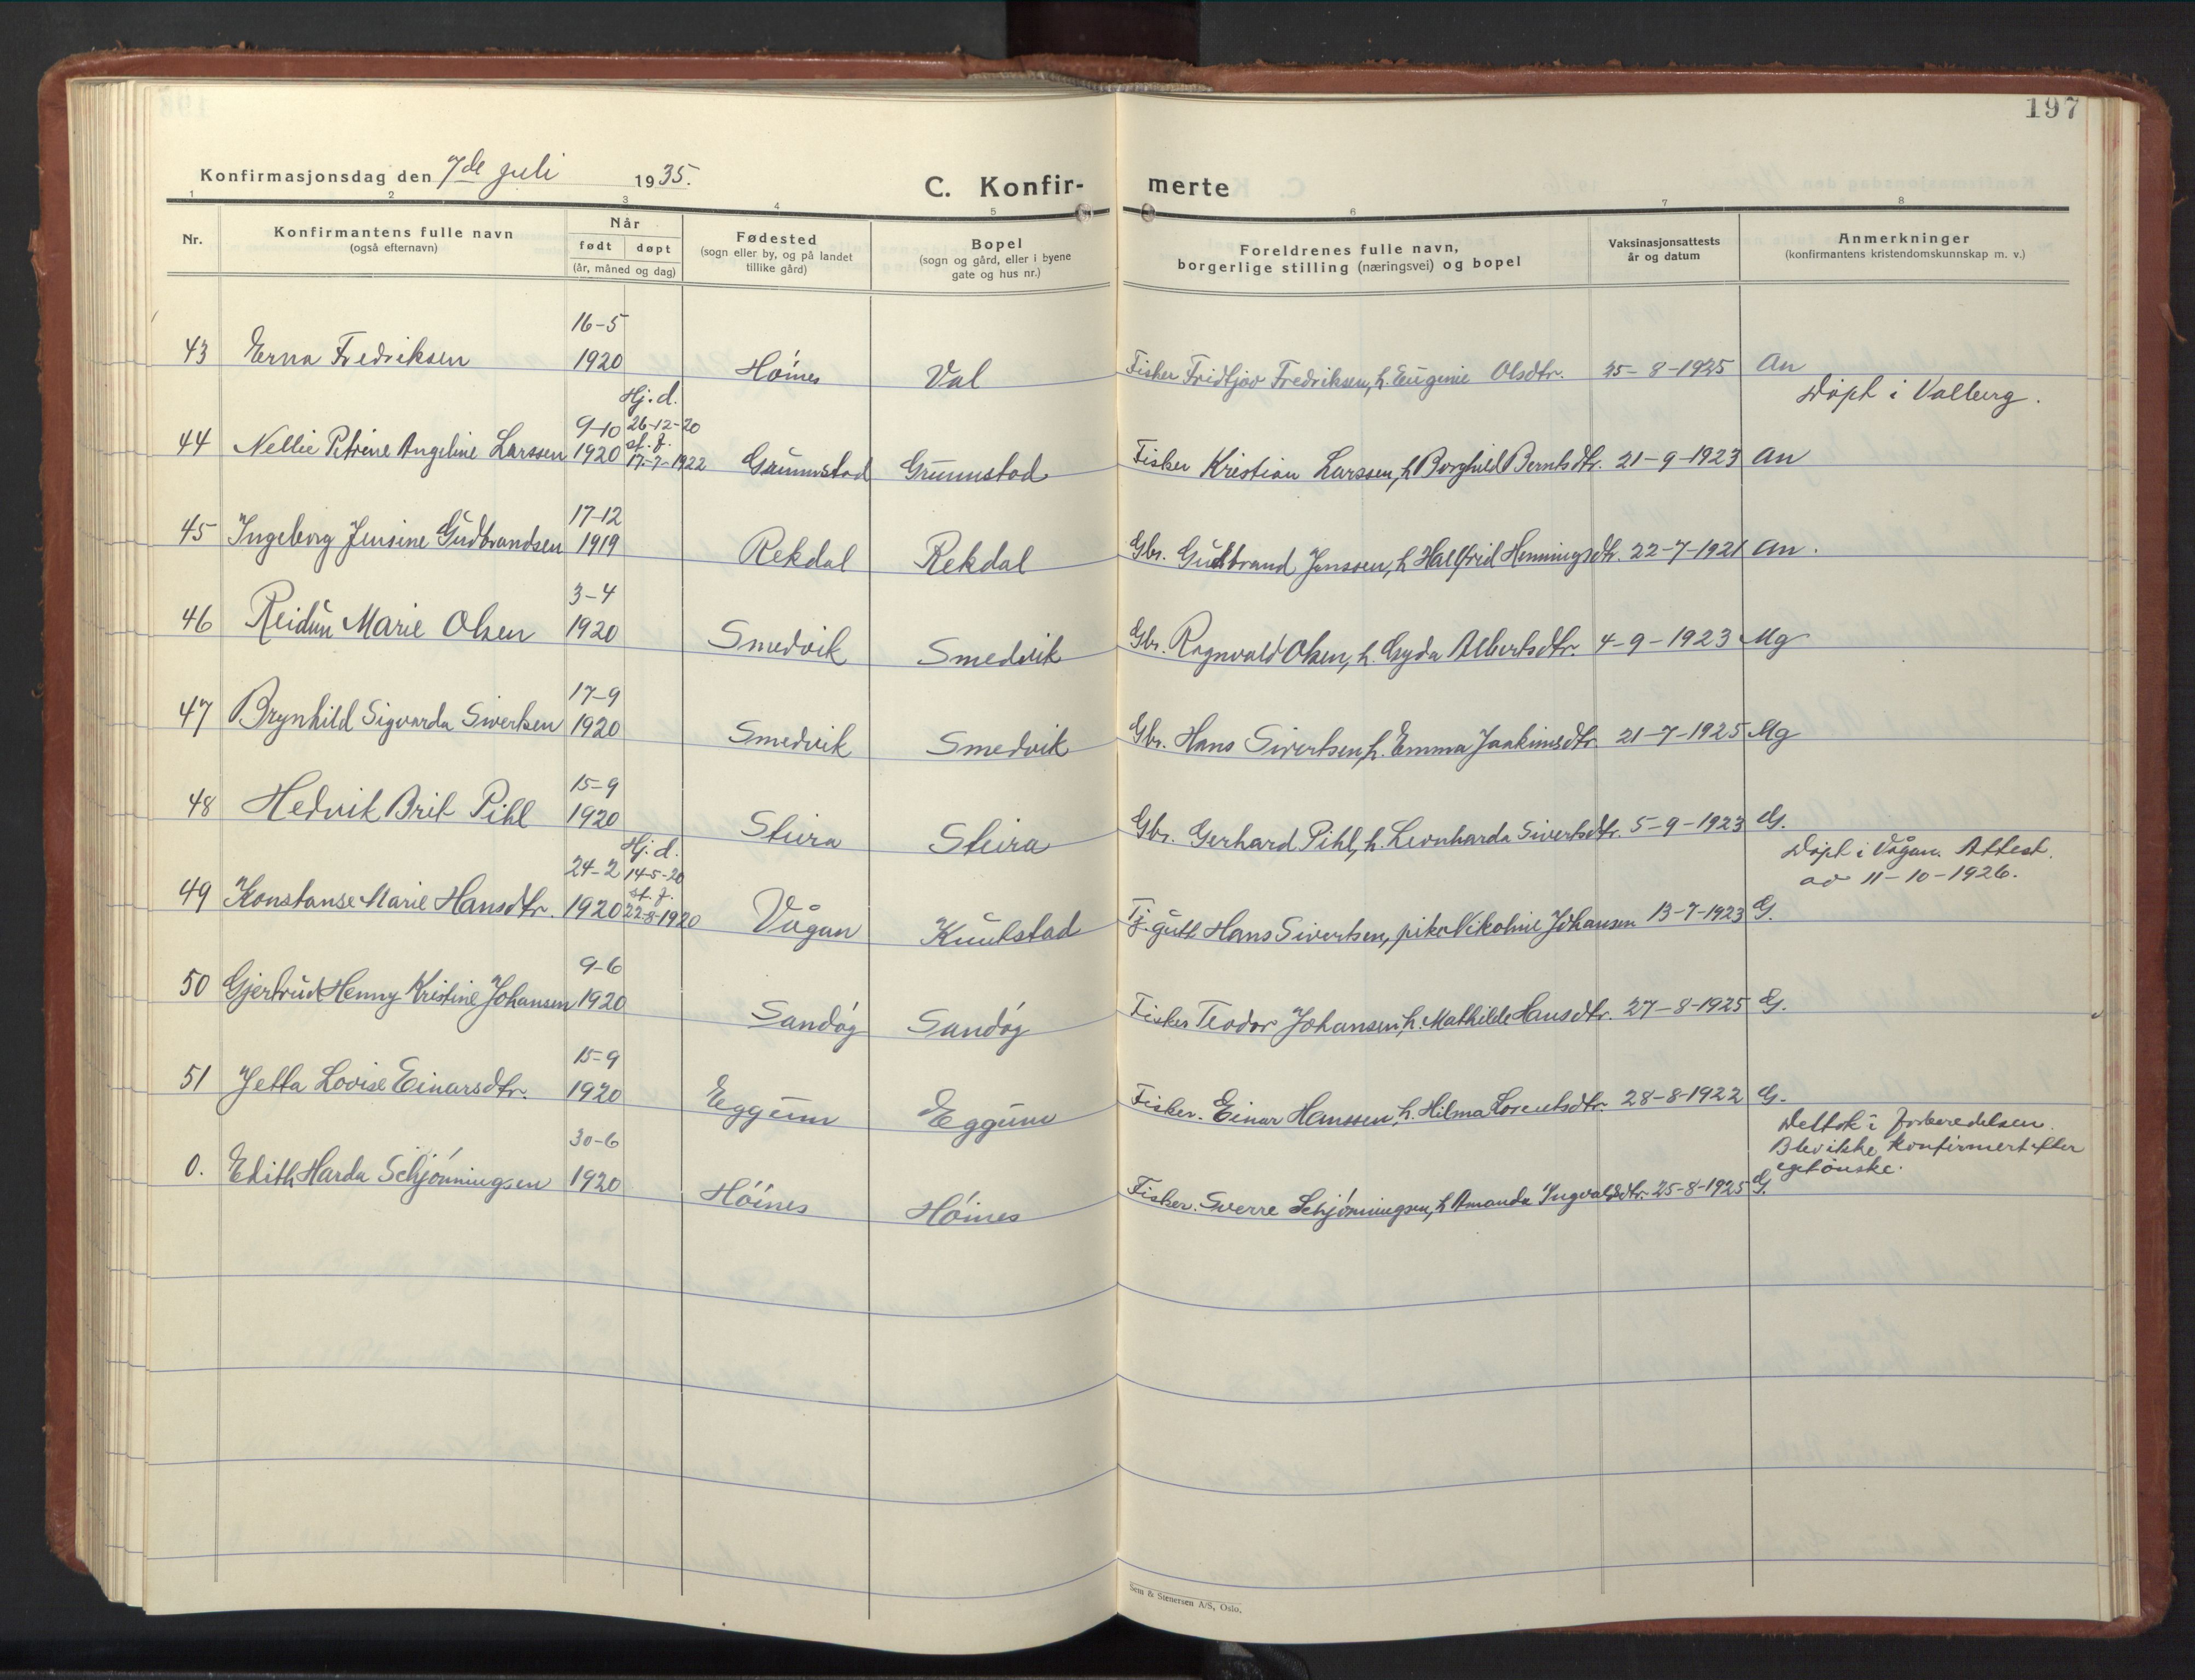 197
Konfirmasjonsdag den 7de juli 1935.
C. Konfir- merte
1 2 3 4 5 6 7 8
Nr.
Konfirmantens fulle navn
(også efternavn)
Når
født døpt
(år, måned og dag)
Fødested
(sogn eller by, og på landet
tillike gård)
Bopel
(sogn og gård, eller i byene
gate og hus nr.)
Foreldrenes fulle navn,
borgerlige stilling (næringsvei) og bopel
Vaksinasjonsattests
år og datum
Anmerkninger
(konfirmantens kristendomskunnskap m. v.)
16-5
43 Erna Fredriksen 1920 Høines Val Fisker Fridtjov Fredriksen, h. Eugenie Olsdtr. 25-8-1925 An
Hj. d. Døpt i Valberg.
9-10 26-12-20
st. f.
44 Nellie Petrine Angeline Larssen 1920 17-7-1922 Grunnstad Grunnstad Fisker Kristian Larssen, h Borghild Berntsdtr. 21-9-1923 An
17-12
45 Ingeborg Jensine Gudbrandsen 1919 Rekdal Rekdal Gbr. Gudbrand Jenssen, h Hallfrid Henningsdtr. 22-7-1921 An.
3-4
46 Reidun Marie Olsen 1920 Smedvik Smedvik Gbr. Ragnvald Olsen, h. Gyda Albertsdtr. 4-9-1923 Mg
17-9
47 Brynhild Sigvarda Sivertsen 1920 Smedvik Smedvik Gbr. Hans Sivertsen, h. Emma Joakimsdtr. 21-7-1925 Mg
15-9
48 Hedvik Brit Pihl 1920 Steira Steira Gbr. Gerhard Pihl, h. Leonharda Sivertsdtr. 5-9-1923 G.
Hj. d. Døpt i Vågan. Attest.
24-2 14-5-20 av 11-10-1926.
st. f.
49 Konstanse Marie Hansdtr. 1920 22-8-1920 Vågan Knutstad Tj. gutt Hans Sivertsen, pike Nikoline Johansen 13-7-1923 G.
9-6
50 Gjertrud Henny Kristine Johansen 1920 Sandøg Sandøg Fisker Teodor Johansen, h. Mathilde Hansdtr. 27-8-1925 G.
15-9
51 Jetta Lovise Einarsdtr. 1920 Eggum Eggum Fisker. Einar Hanssen, h. Hilma Lorentsdtr. 28-8-1922 G.
Deltok i forberedelsen.
30-6 Blev ikke konfirmert efter
eget ønske.
0. Edith Harda Schjønningsen 1920 Høines Høines Fisker. Sverre Schjønningsen, h Amanda Ingvaldsdtr. 25-8-1925 G.
Sem & Stenersen A/S, Oslo.